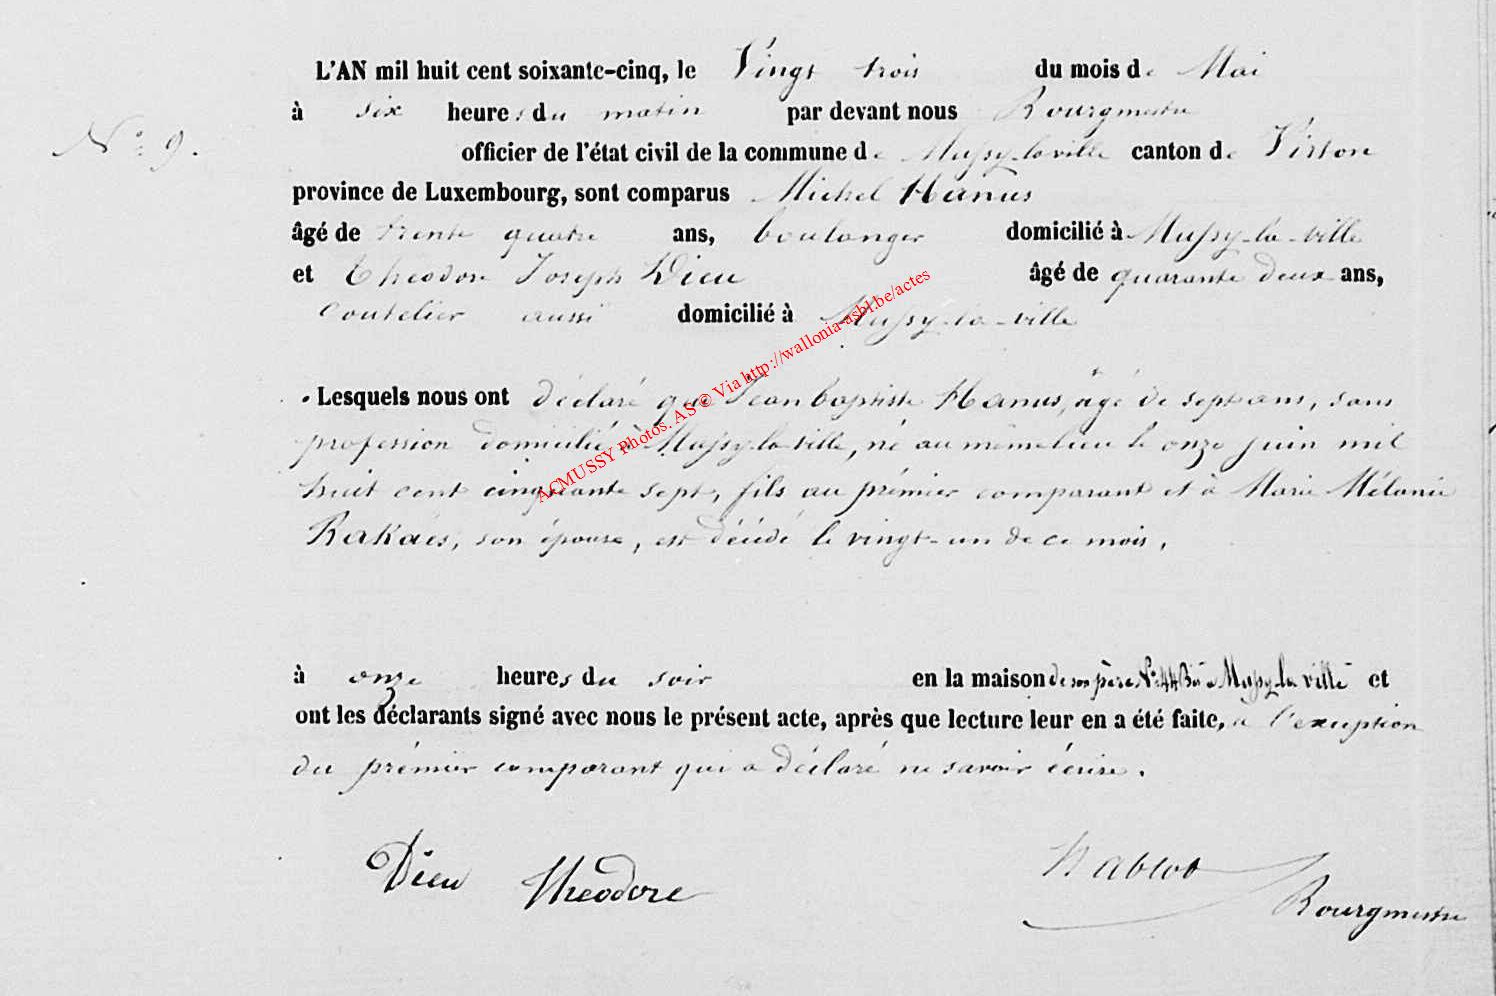 L'AN mil huit cent soixante-cinq, le Vingt trois du mois de Mai
à six heures du matin par devant nous Bourgmestre
N° 9. officier de l'état civil de la commune de Mussy-la-ville canton de Virton
province de Luxembourg, sont comparus Michel Hanus
âgé de trente quatre ans, boulanger domicilié à Mussy-la-ville
et Theodore Joseph Dieu âgé de quarante deux ans,
Coutelier aussi domicilié à Mussy-la-ville
ACMUSSY Photos. AS © Via http://wallonia-asbl.be/actes
Lesquels nous ont déclaré que Jean baptiste Hanus, âgé de sept ans, sans
profession domicilié à Mussy-la-ville, né au même lieu le onze juin mil
huit cent cinquante sept, fils au prémier comparant et à Marie Mélanie
Rakaës, son épouse, est décédé le vingt-un de ce mois,
à onze heures du soir en la maison de son père N° 44 à Mussy-la ville et
ont les déclarants signé avec nous le présent acte, après que lecture leur en a été faite, a l'exception
du prémier comparant qui a déclaré ne savoir écrire.
Dieu Théodore Bourgmestre